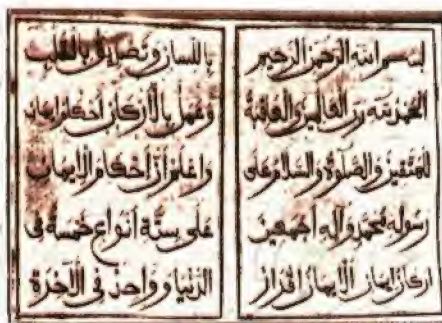 بسم الله الرحمن الرحيم
الحمد لله رب العالمين والعاقبة
للمتقين والصلوة والسلام على
رسوله محمد وآله اجمعين
اركان ايمان الايمان اقرار
باللسان وتصديق بالقلب
وعمل بالاركان احكام ايمان
واعلم ان احكام الايمان
على ستة انواع خمسة فى
الدنيا وواحد فى الآخرة